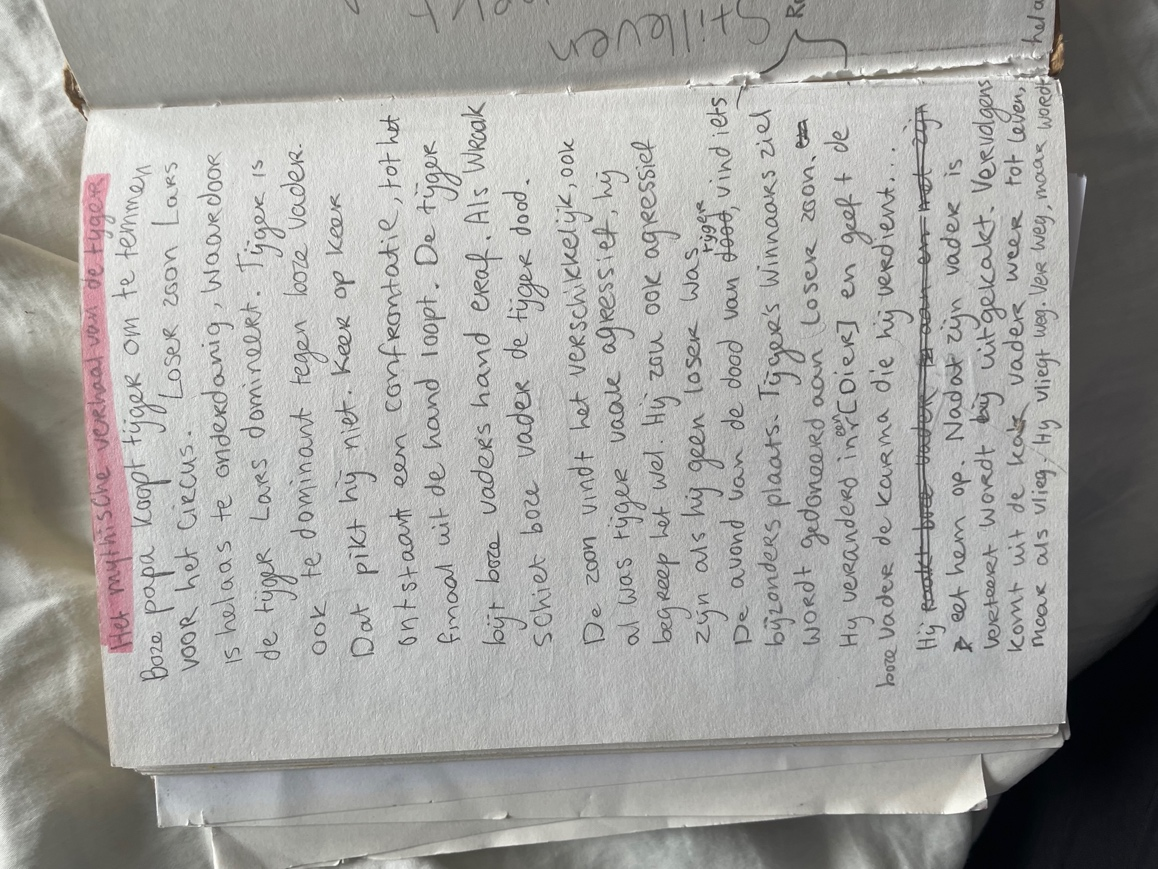 Het mythische verhaal van de tijger
Boze papa koopt tijger om te temmen
voor het circus. Loser zoon Lars
is helaas te onderdanig, waardoor
de tijger Lars domineert. Tijger is
ook te dominant tegen boze vader.
Dat pikt hij niet. Keer op keer
ontstaan een confrontatie, tot het
finaal uit de hand loopt. De tijger
bijt boze vaders hand eraf. Als wraak
schiet boze vader de tijger dood.
De zoon vindt het verschikkelijk, ook
al was tijger vaak agressief, hij
begreep het wel. Hij zou ook agressief
zijn als hij geen loser was
De avond van de dood van tijger, vind iets
bijzonders plaats. Tijger's winnaars ziel
wordt gedoneerd aan loser zoon.
Hy veranderd in een [Dier] en geeft de
boze vader de karma die hij verdient...
Hij
eet hem op. Nadat zijn vader is
verteert wordt hij uitgekakt. Vervolgens
komt uit de kak vader weer tot leven,
maar als vlieg. Hy vliegt weg. Ver weg, maar wordt
Stilleven